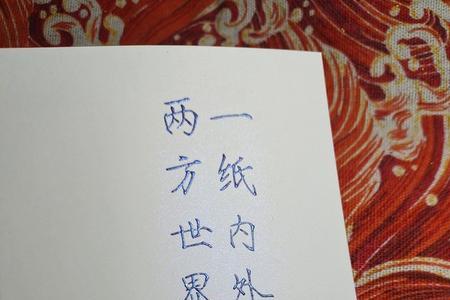 一纸内外
两方世界